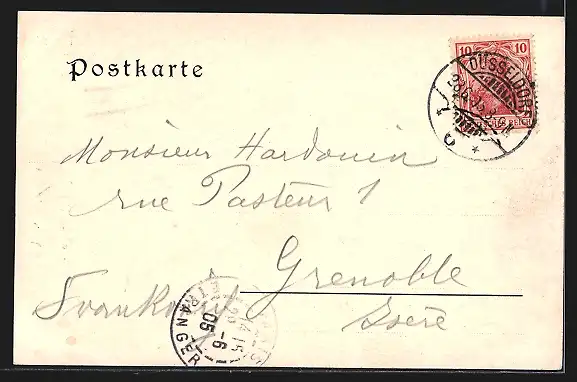 Postkarte
10 10
DÜSSELDORF
REICH
Monsieur Hardouin
rue Pasteur 1
Grenoble
Frankreich
Isère
ETRANGER
05 -6